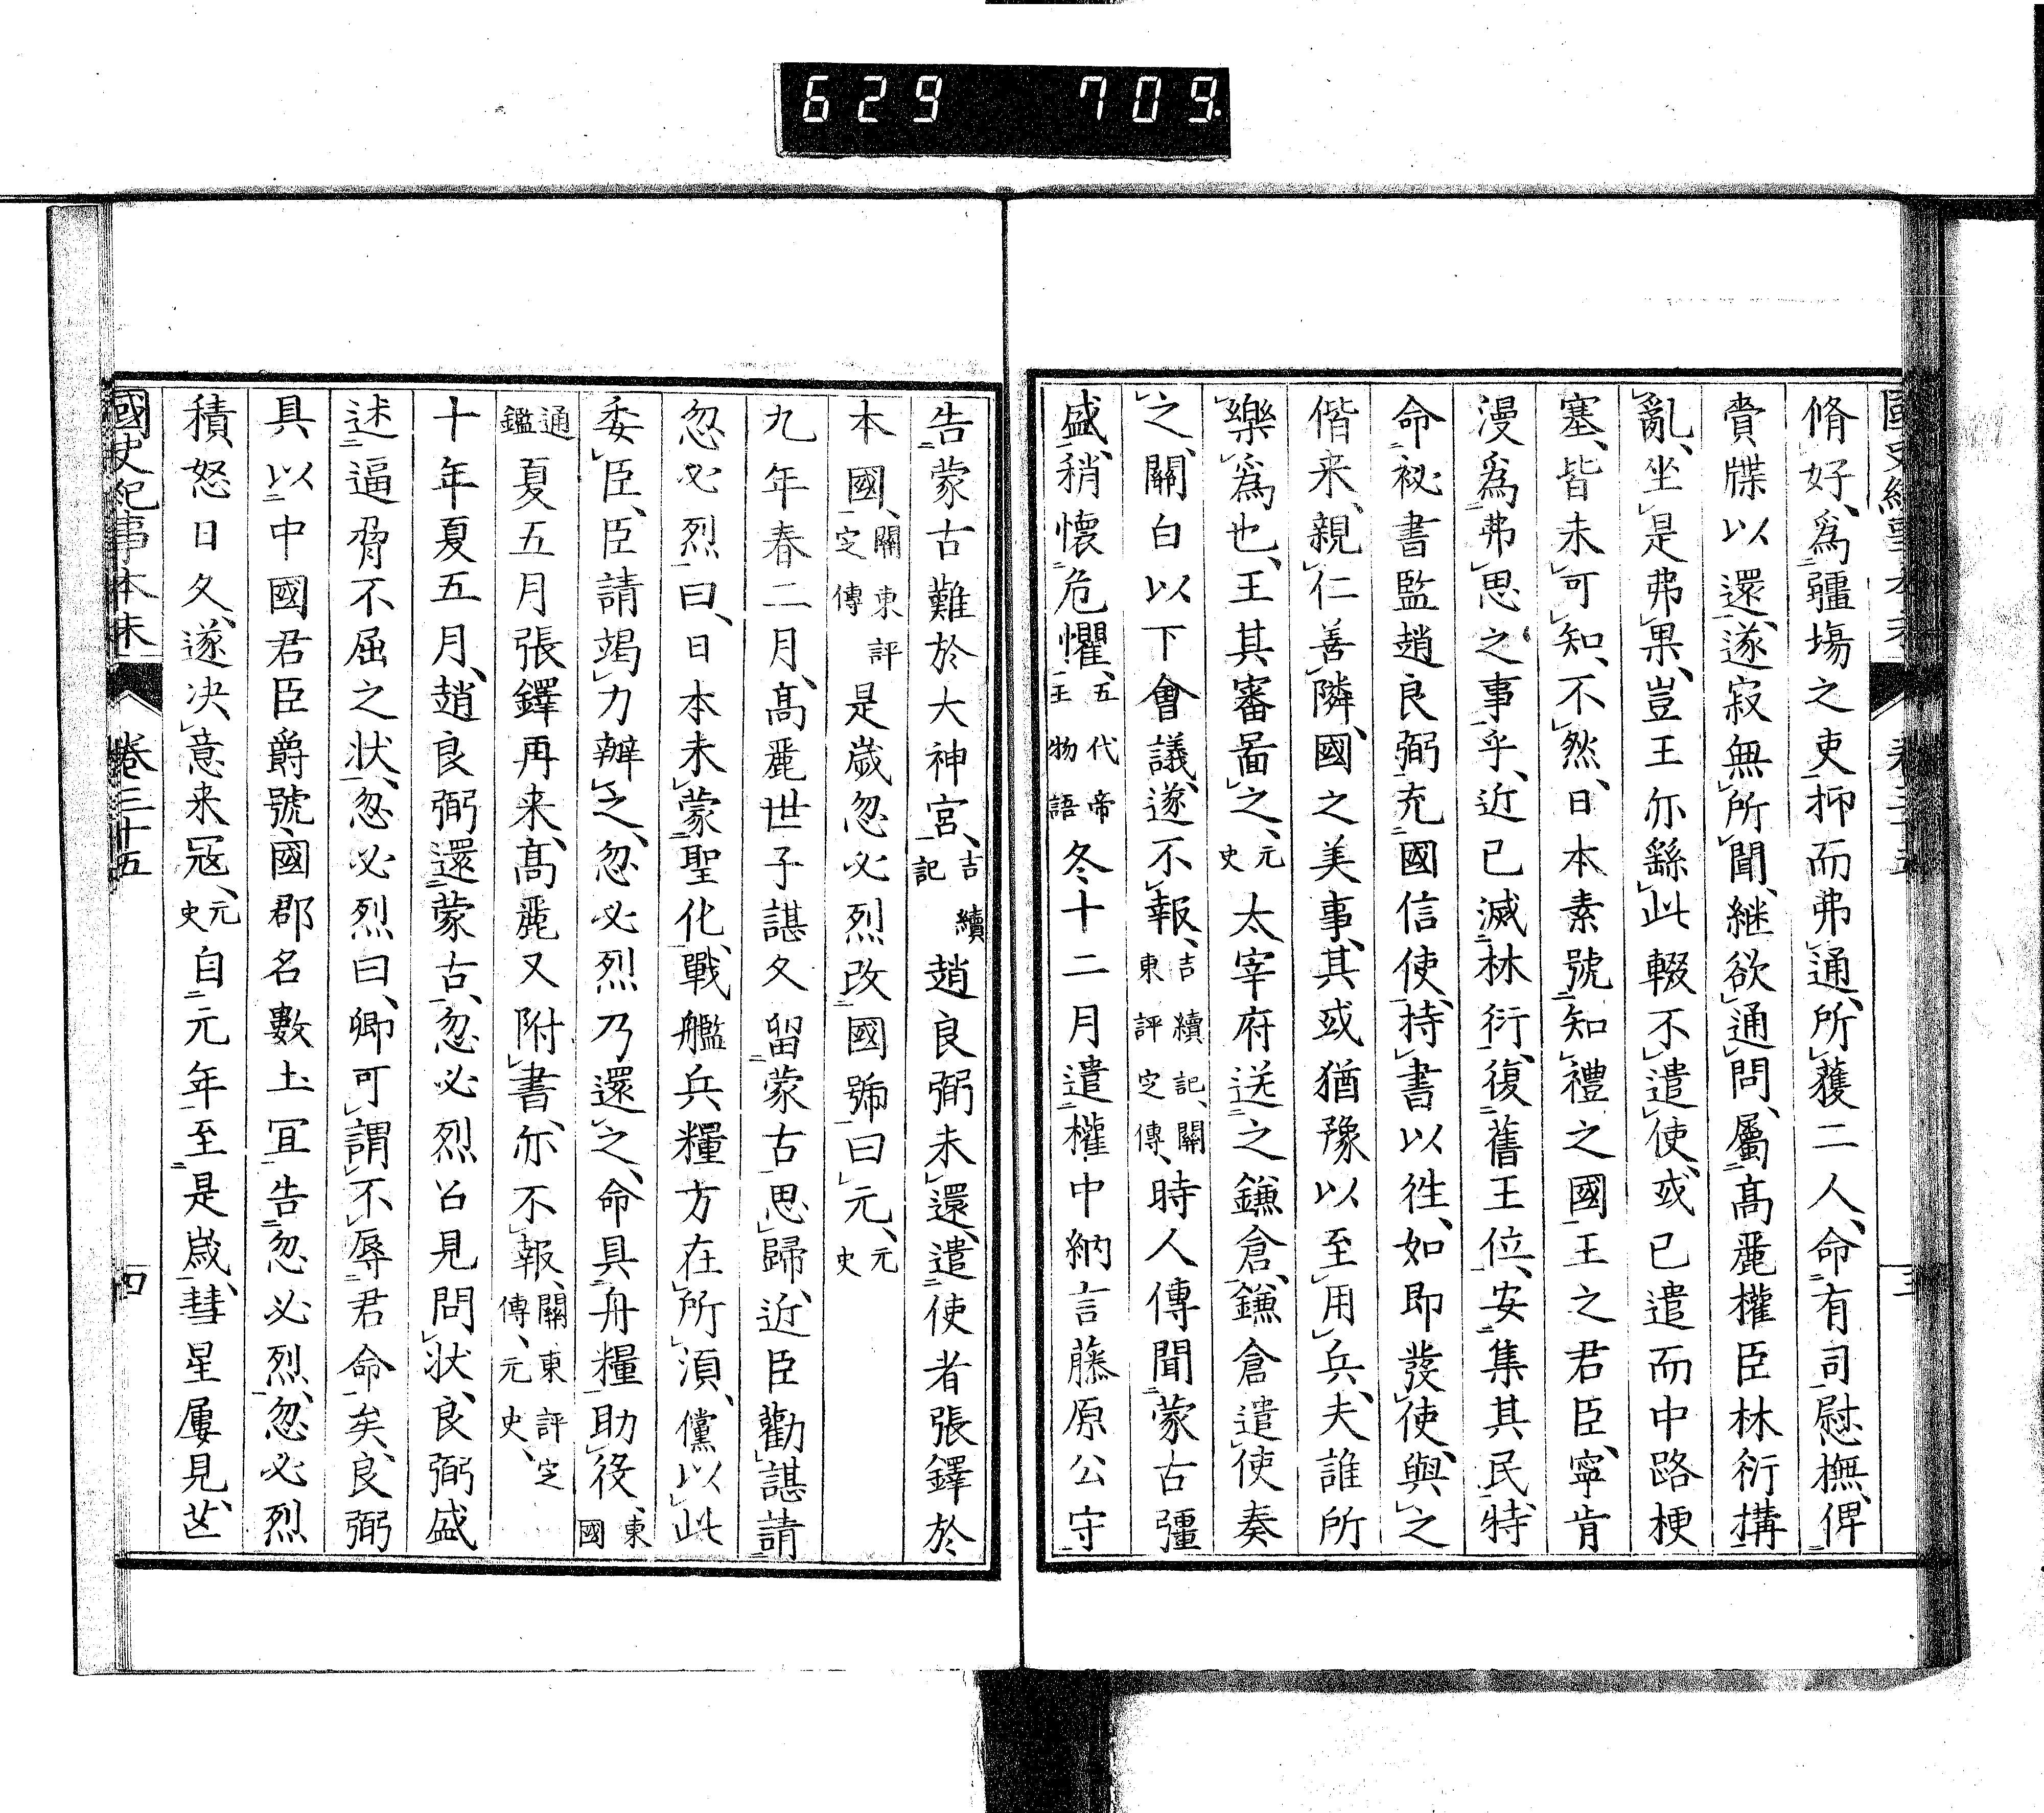 629 709.
脩好、爲疆場之吏抑而弗通、所獲二人、命有司慰撫、俾
賫牒以還、遂寂無所聞、継欲通問、屬髙麗權臣林衍搆
亂、坐是弗果、豈王亦繇此輟不遣使、或已遣而中路梗
塞、皆未可知、不然、日本素號知禮之國、王之君臣、寧肯
漫爲弗思之事乎、近已滅林衍、復舊王位、安集其民、特
命祕書監趙良弼充國信使、持書以徃、如即發使、與之
偕来、親仁善隣、國之美事、其或猶豫以至用兵、夫誰所
樂爲也、王其審啚之、元史 太宰府送之鎌倉、鎌倉遣使奏
之、關白以下會議、遂不報、吉續記、關東評定傳、時人傳聞蒙古彊
盛、稍懷危懼、五代帝王物語 冬十二月遣權中納言藤原公守
告蒙古難於大神宮、吉續記 趙良弼未還、遣使者張鐸於
本國、關東評定傳 是歲忽必烈改國號曰元、元史
九年春二月、髙麗世子諶久留蒙古思歸、近臣勸諶請
忽必烈曰、日本未蒙聖化、戰艦兵糧方在所須、儻以此
委臣、臣請竭力辦之、忽必烈乃還之、命具舟糧助役、東國
通鑑 夏五月張鐸再来、髙麗又附書、亦不報、關東評定傳、元史、
十年夏五月、趙良弼還蒙古、忽必烈召見問状、良弼盛
述逼脅不屈之状、忽必烈曰、卿可謂不辱君命矣、良弼
具以中國君臣爵號國郡名數土冝告忽必烈、忽必烈
積怒日久、遂决意来冦、元史 自元年至是歲、彗星屢見、芒
國史紀事本末 卷三十五 四